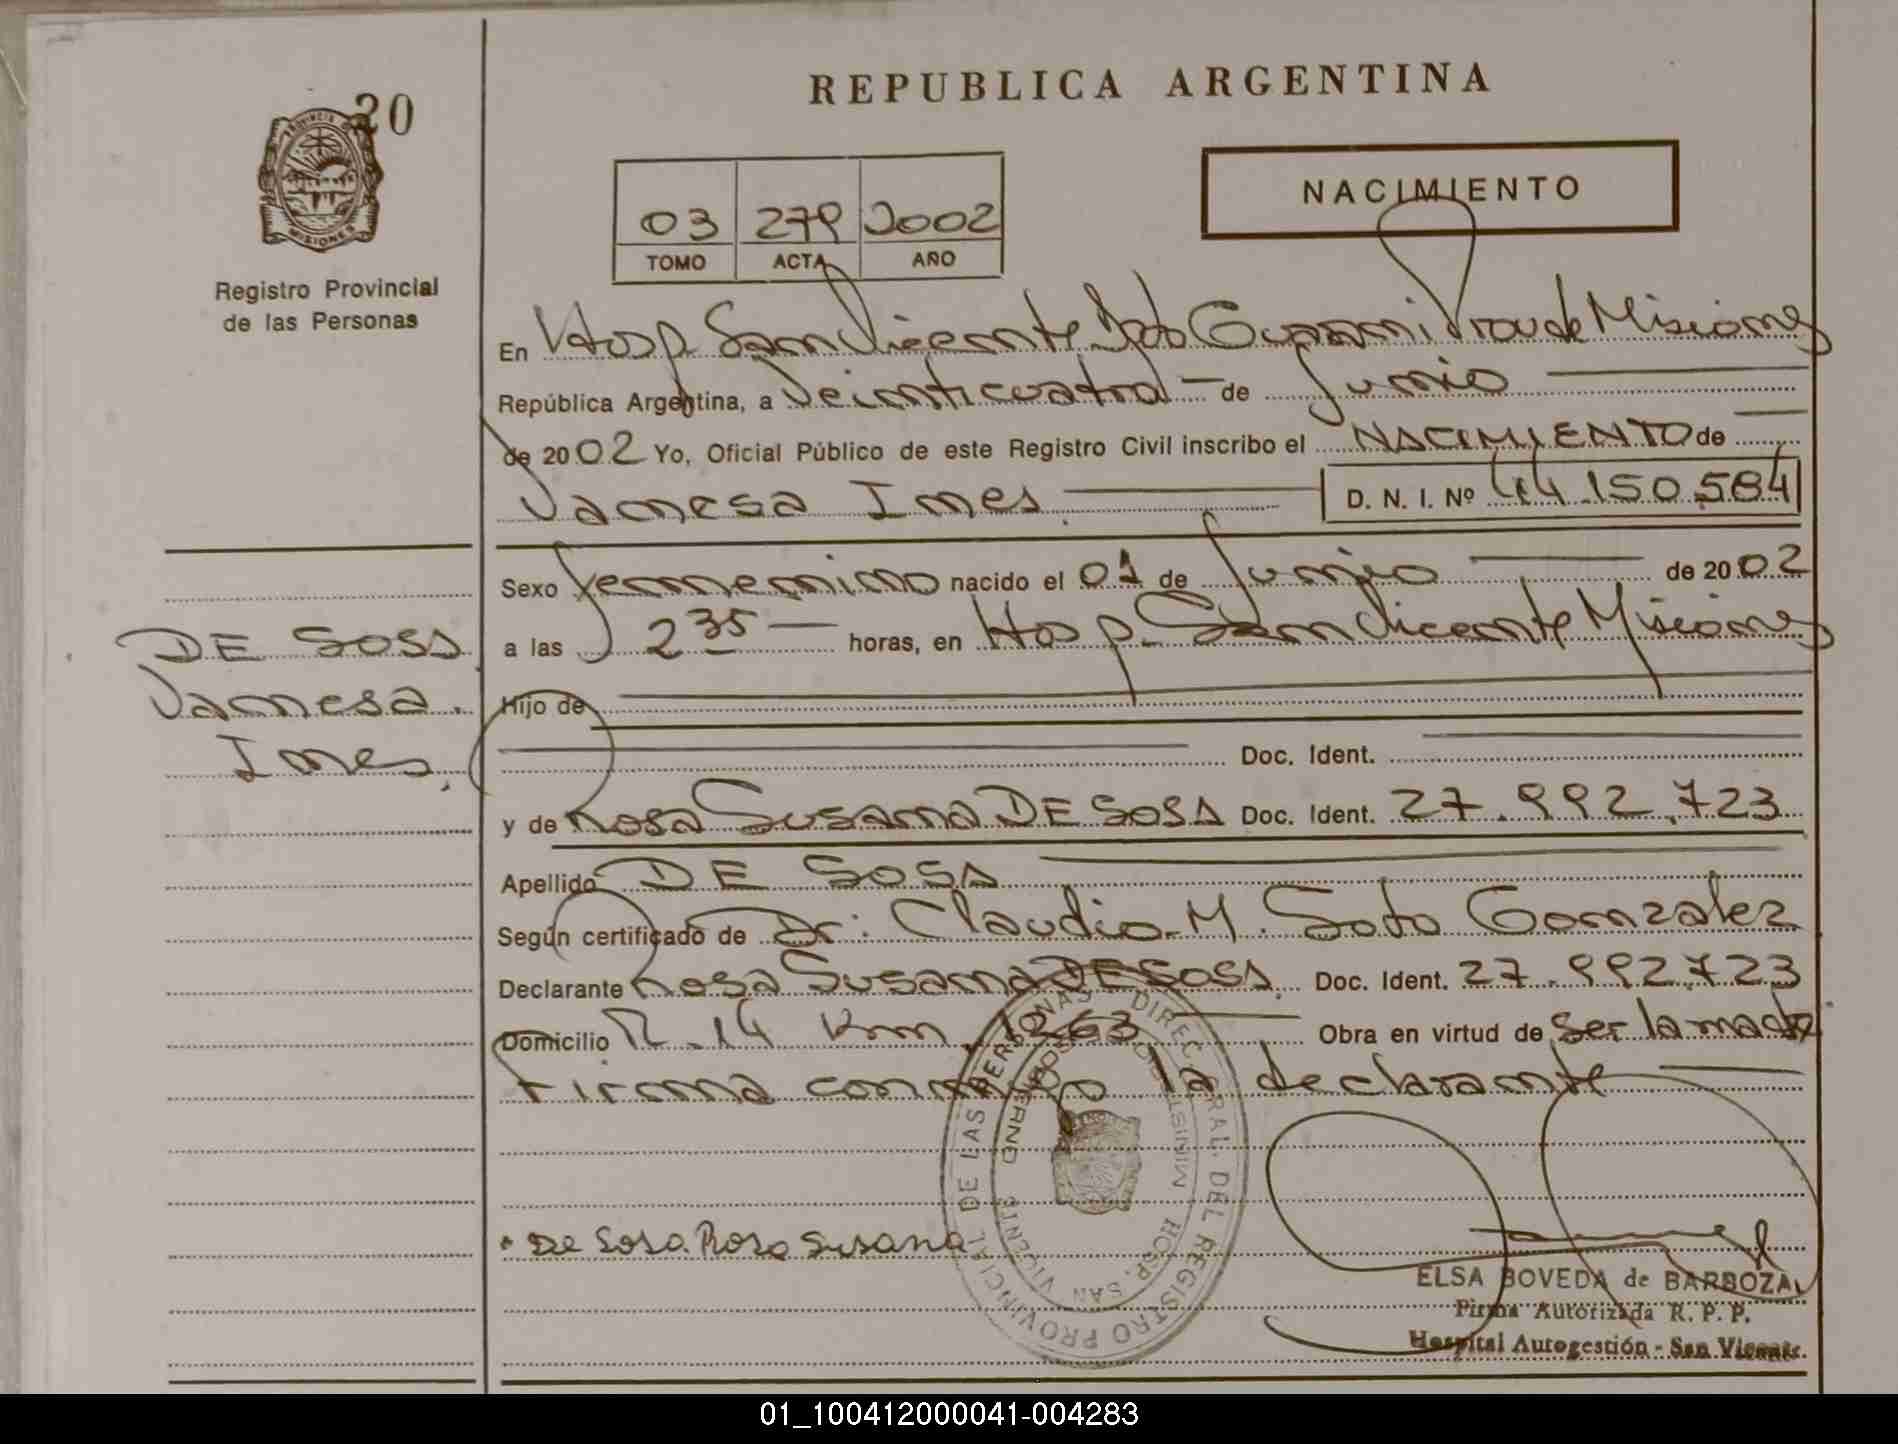 20
PROVINCIA DE
MISIONES
Registro Provincial
de las Personas
REPUBLICA ARGENTINA
03 279 2002
TOMO ACTA AÑO
NACIMIENTO
En Hosp. San Vicente Dpto Guarani Prov de Misiones
República Argentina, a Veinticuatro — de Junio
de 2002 Yo, Oficial Público de este Registro Civil inscribo el NACIMIENTO de
Vanesa Ines D. N. I. Nº 44.150.584
Sexo femenino nacido el 01 de Junio de 2002
a las 2 35 — horas, en Hosp. San Vicente Misiones
Hijo de
Doc. Ident.
y de Rosa Susana DE SOSA Doc. Ident. 27.992.723
Apellido DE SOSA
Según certificado de Dr: Claudio M. Soto Gonzalez
Declarante Rosa Susana DE SOSA Doc. Ident. 27.992.723
Domicilio R. 14 Km 1263 Obra en virtud de ser la madre
Firma conmigo la declarante
DE SOSA
Vanesa
Ines.
De Sosa Rosa Susana
DIREC. GRAL. DEL REGISTRO PROVINCIAL DE LAS PERSONAS
MINISTERIO GOBIERNO
HOSP. SAN VICENTE
ELSA BOVEDA de BARBOZA
Firma Autorizada R. P. P.
Hospital Autogestión - San Vicente.
01_100412000041-004283